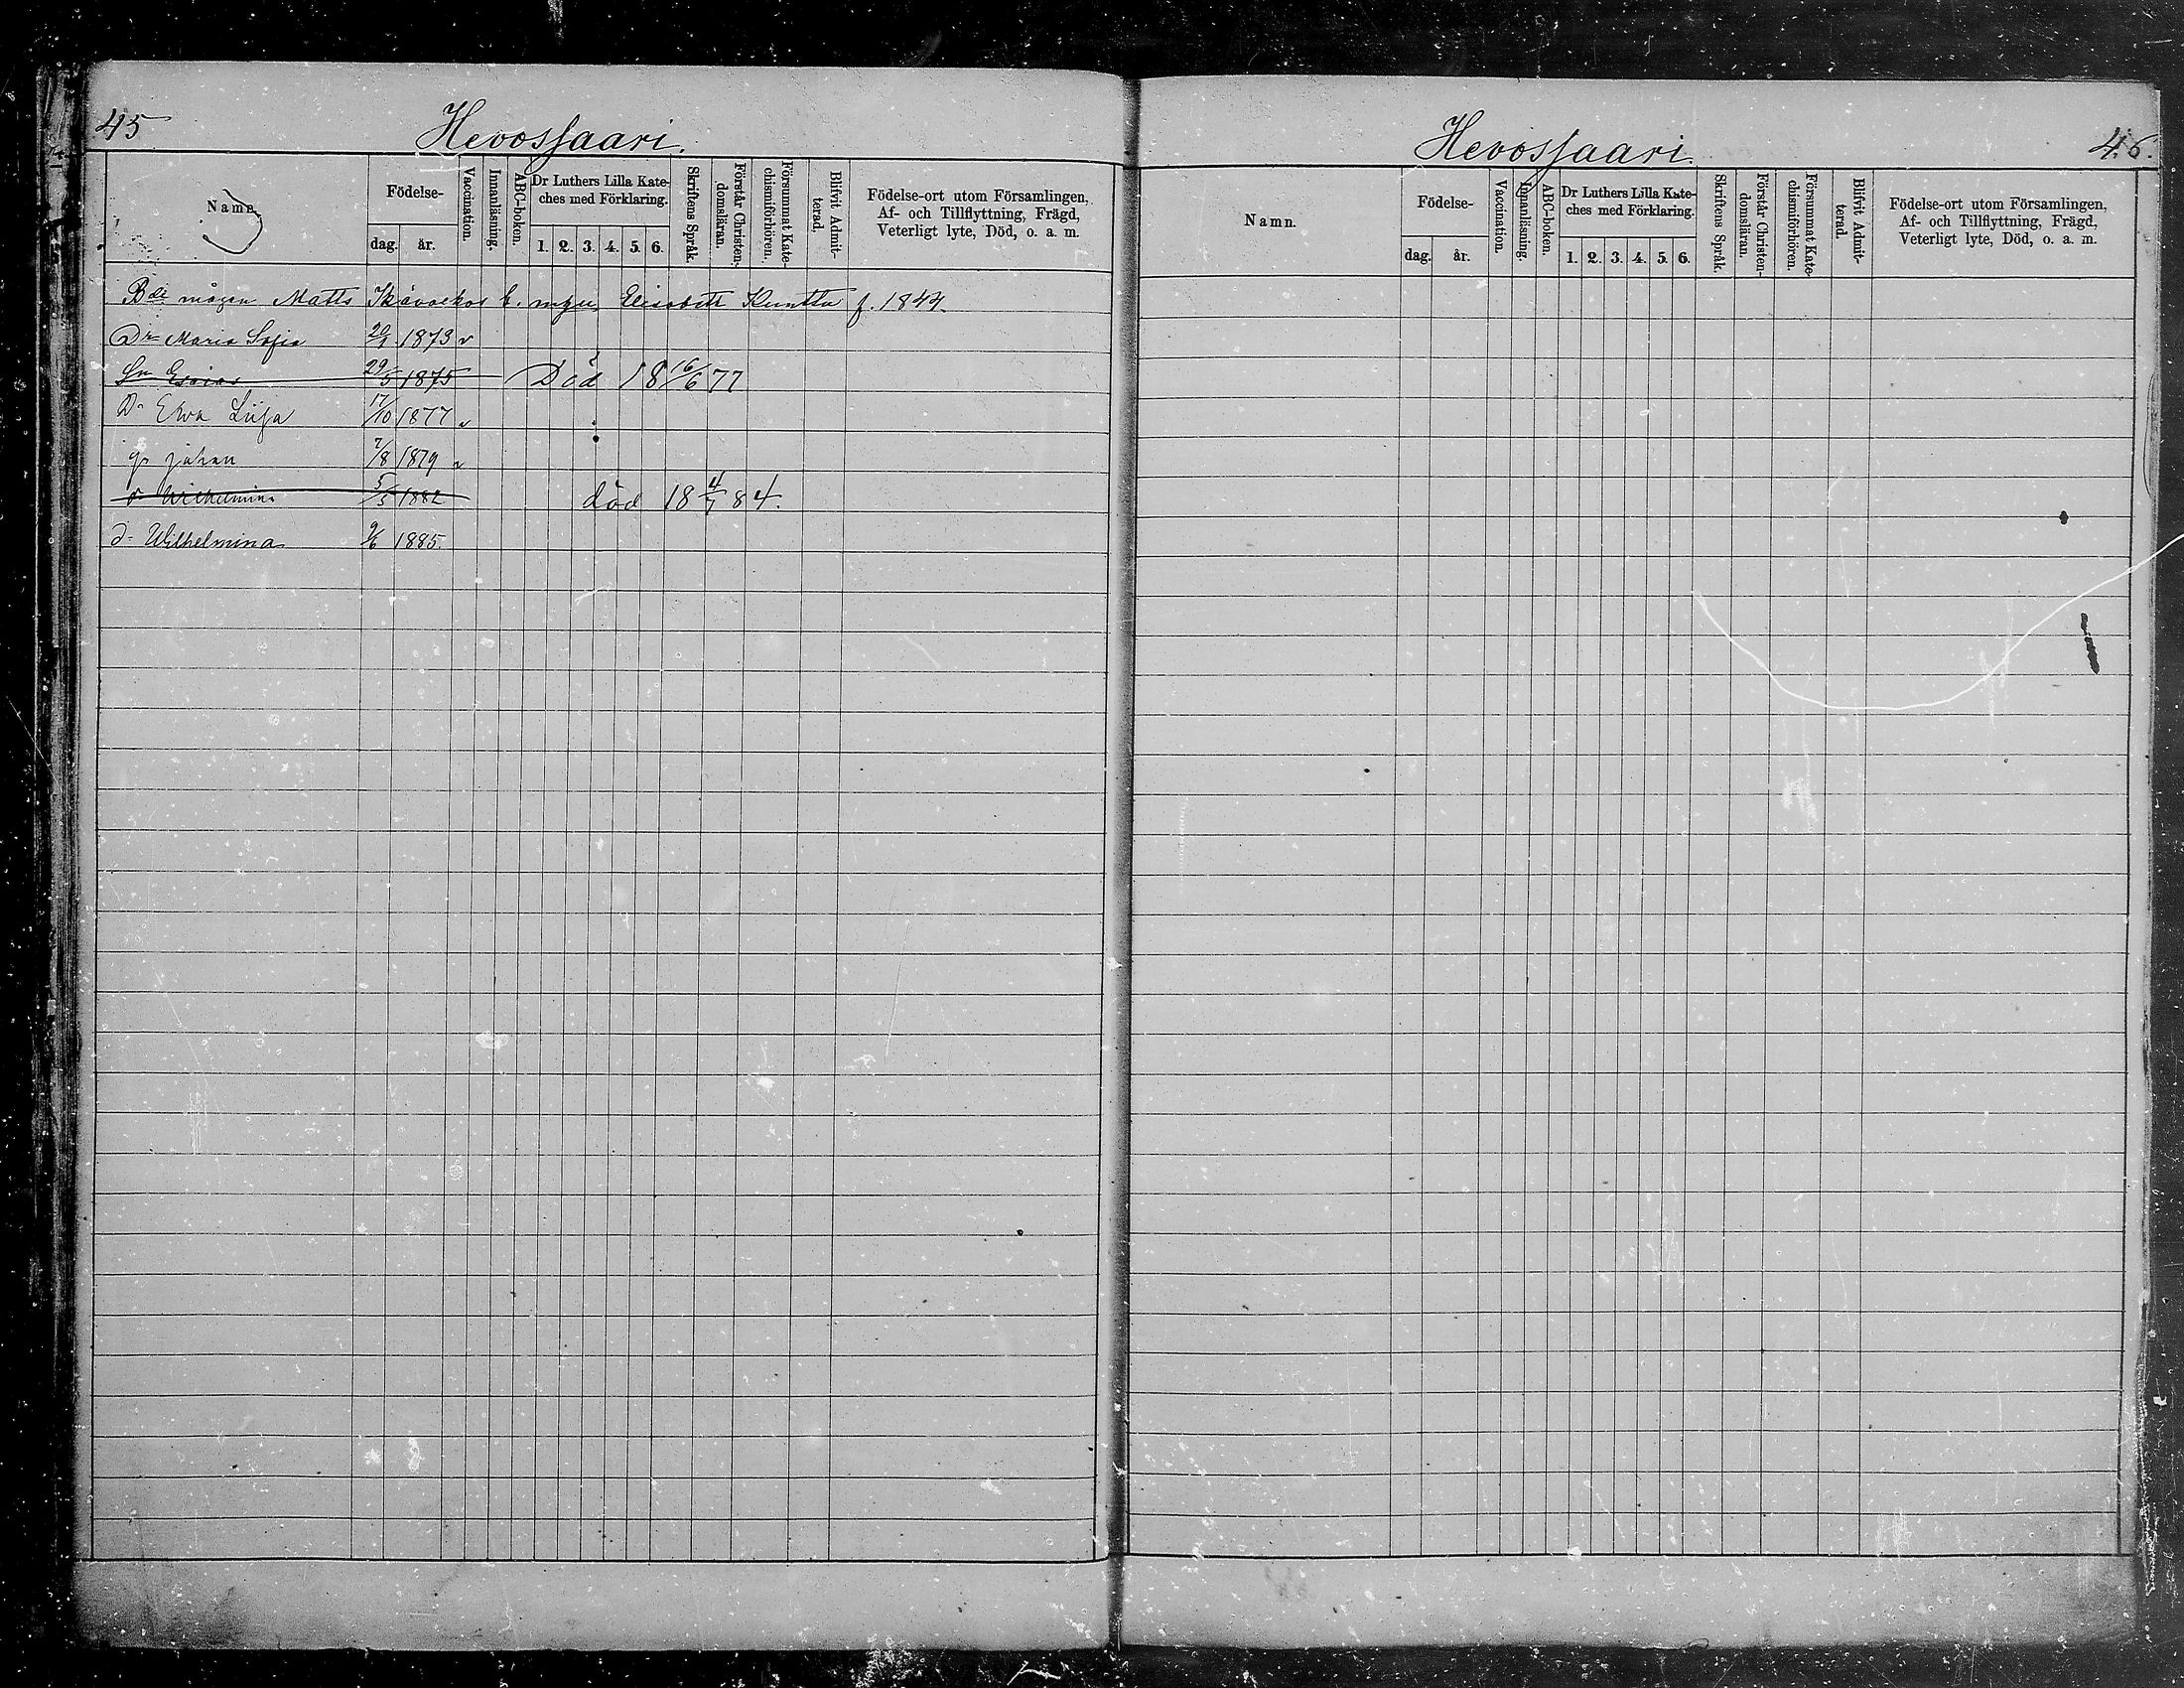 45
Hevossaari.
Namn.
Födelse-
dag. år.
Vaccination.
Innanläsning.
ABC-boken.
Dr Luthers Lilla Kate-
ches med Förklaring.
1. 2. 3. 4. 5. 6.
Skriftens Språk.
Förstår Christen-
domsläran.
Försummat Kate-
chismiförhören.
Blifvit Admit-
terad.
Födelse-ort utom Församlingen,
Af- och Tillflyttning, Frägd,
Veterligt lyte, Död, o. a. m.
mågen Matts Elisabett Kunttu f. 1844
Dr Maria Sofia 1873
Sn Esaias 29/5 1875 Död 18 16/6 77
Dr Eva Liisa 17/10 1877
johan 7/8 1879
d. Wilhelmina 5/5 1882 död 18 4/7 84.
d. Wilhelmina 9/6 1885.
Hevossaari.
46.
Namn.
Födelse-
dag. år.
Vaccination.
Innanläsning.
ABC-boken.
Dr Luthers Lilla Kate-
ches med Förklaring.
1. 2. 3. 4. 5. 6.
Skriftens Språk.
Förstår Christen-
domsläran.
Försummat Kate-
chismiförhören.
Blifvit Admit-
terad.
Födelse-ort utom Församlingen,
Af- och Tillflyttning, Frägd,
Veterligt lyte, Död, o. a. m.